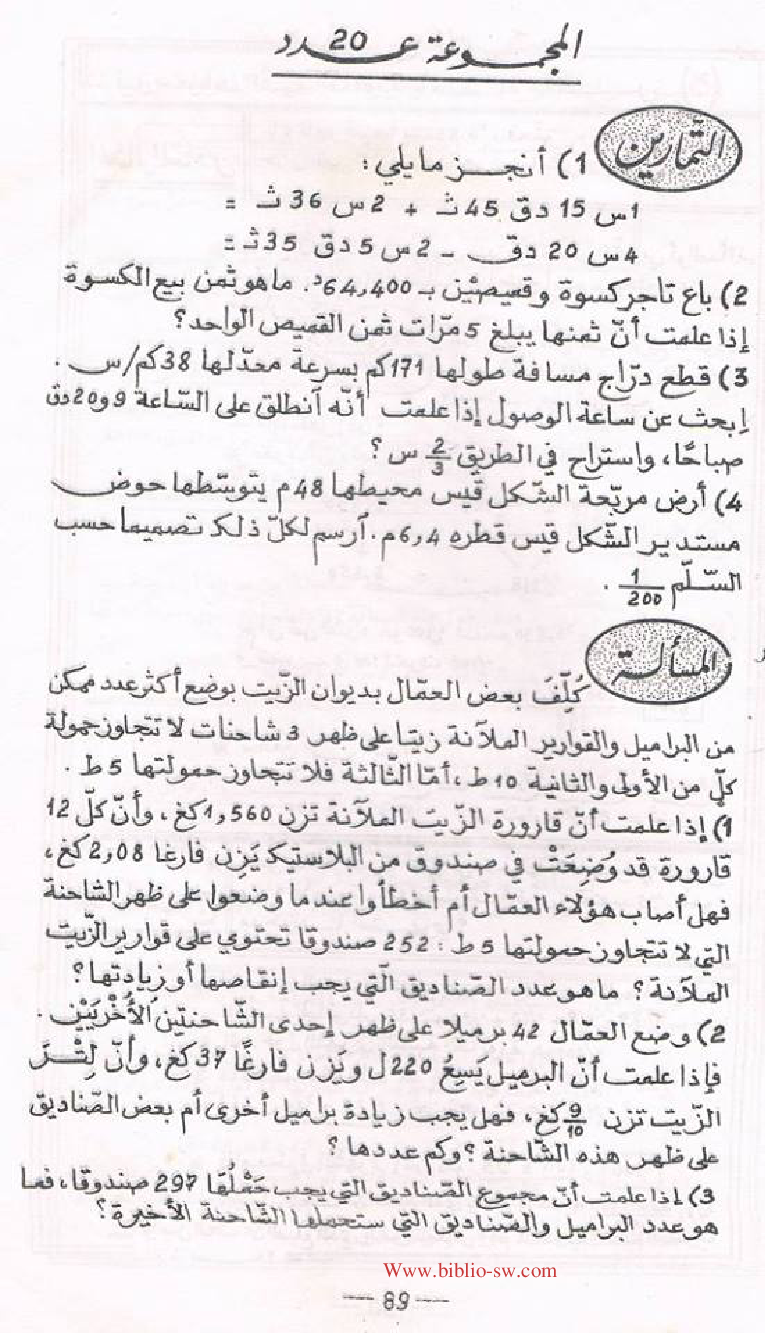 المجموعة عدد 20
التمارين
1) أنجز ما يلي:
1س 15 دق 45 ث + 2 س 36 ث =
4 س 20 دق - 2 س 5 دق 35 ث =
2) باع تاجر كسوة وقميصين بـ 64,400د. ما هو ثمن بيع الكسوة
إذا علمت أنّ ثمنها يبلغ 5 مرّات ثمن القميص الواحد؟
3) قطع درّاج مسافة طولها 171 كم بسرعة معدّلها 38 كم/س.
إبحث عن ساعة الوصول إذا علمت أنّه آنطلق على السّاعة 9 و 20 دق
صباحًا، واستراح في الطريق 2/3 س؟
4) أرض مربّعة الشّكل قيس محيطها 48 م يتوسّطها حوض
مستدير الشّكل قيس قطره 6,4 م. آرسم لكلّ ذلك تصميما حسب
السّلّم 1/200 .
المسألة
كُلِّفَ بعض العمّال بديوان الزّيت بوضع أكثر عدد ممكن
من البراميل والقوارير الملآنة زيتا على ظهر 3 شاحنات لا تتجاوز حمولة
كلّ من الأولى والثانية 10 ط، أمّا الثّالثة فلا تتجاوز حمولتها 5 ط.
1) إذا علمت أنّ قارورة الزّيت الملآنة تزن 1,560 كغ، وأنّ كلّ 12
قارورة قد وُضِعَتْ في صندوق من البلاستيك يَزِن فارغا 2,08 كغ،
فهل أصاب هؤلاء العمّال أم أخطأوا عندما وضعوا على ظهر الشاحنة
التي لا تتجاوز حمولتها 5 ط: 252 صندوقا تحتوي على قوارير الزّيت
الملآنة؟ ما هو عدد الصّناديق الّتي يجب إنقاصها أو زيادتها؟
2) وضع العمّال 42 برميلا على ظهر إحدى الشّاحنتين الأُخْرَيَيْنِ.
فإذا علمت أنّ البرميل يَسِعُ 220 ل ويَزن فارغًا 37 كغ، وأنّ لِتْرَ
الزّيت تزن 9/10 كغ، فهل يجب زيادة براميل أخرى أم بعض الصّناديق
على ظهر هذه الشّاحنة؟ وكم عددها؟
3) إذا علمت أنّ مجموع الصّناديق التي يجب حَمْلُهَا 297 صندوقا، فما
هو عدد البراميل والصّناديق التي ستحملها الشّاحنة الأخيرة؟
Www.biblio-sw.com
— 89 —